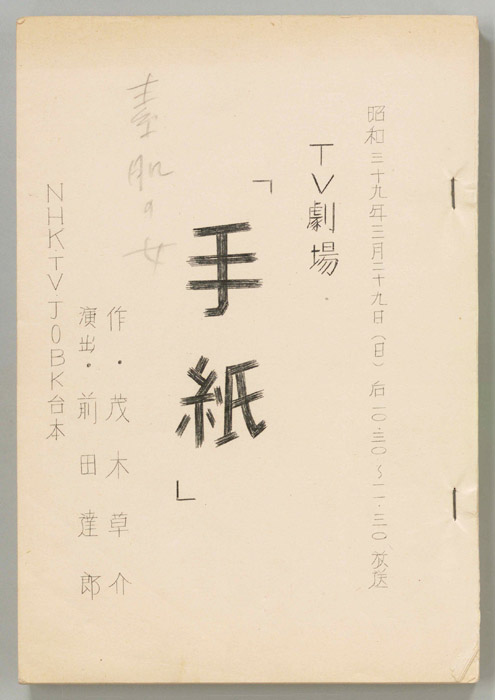 昭和三十九年三月二十九日（日）后一〇・三〇〜一一・三〇放送
TV劇場
「手紙」
素肌の女
作・茂木草介
演出・前田達郎
NHKTVJOBK台本